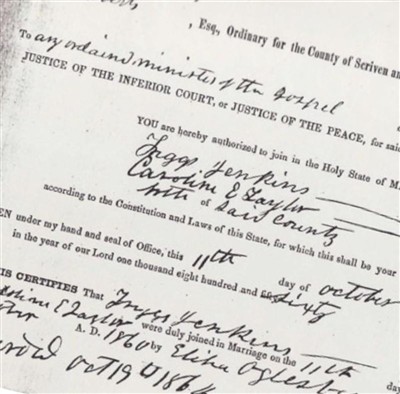 , Esq., Ordinary for the County of Scriven an
To any ordaind minister of the Gospel
JUSTICE OF THE INFERIOR COURT, or JUSTICE OF THE PEACE, for said
YOU are hereby authorized to join in the Holy State of M
Triggs Jenkins
Caroline E Taylor
both of Said County
according to the Constitution and Laws of this State, for which this shall be your
EN under my hand and seal of Office, this 11th day of October
in the year of our Lord one thousand eight hundred and fifsixty
IS CERTIFIES That Triggs Jenkins
roline E Taylor were duly joined in Marriage on the 11th day
A. D. 1860 by Elihu Oglesb
Oct 19th 1860